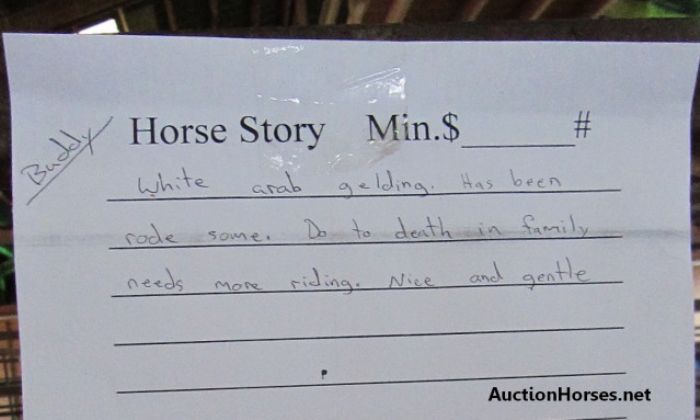 Buddy
Horse Story Min.$______#
White arab gelding. Has been
rode some. Do to death in family
needs more riding. Nice and gentle
AuctionHorses.net